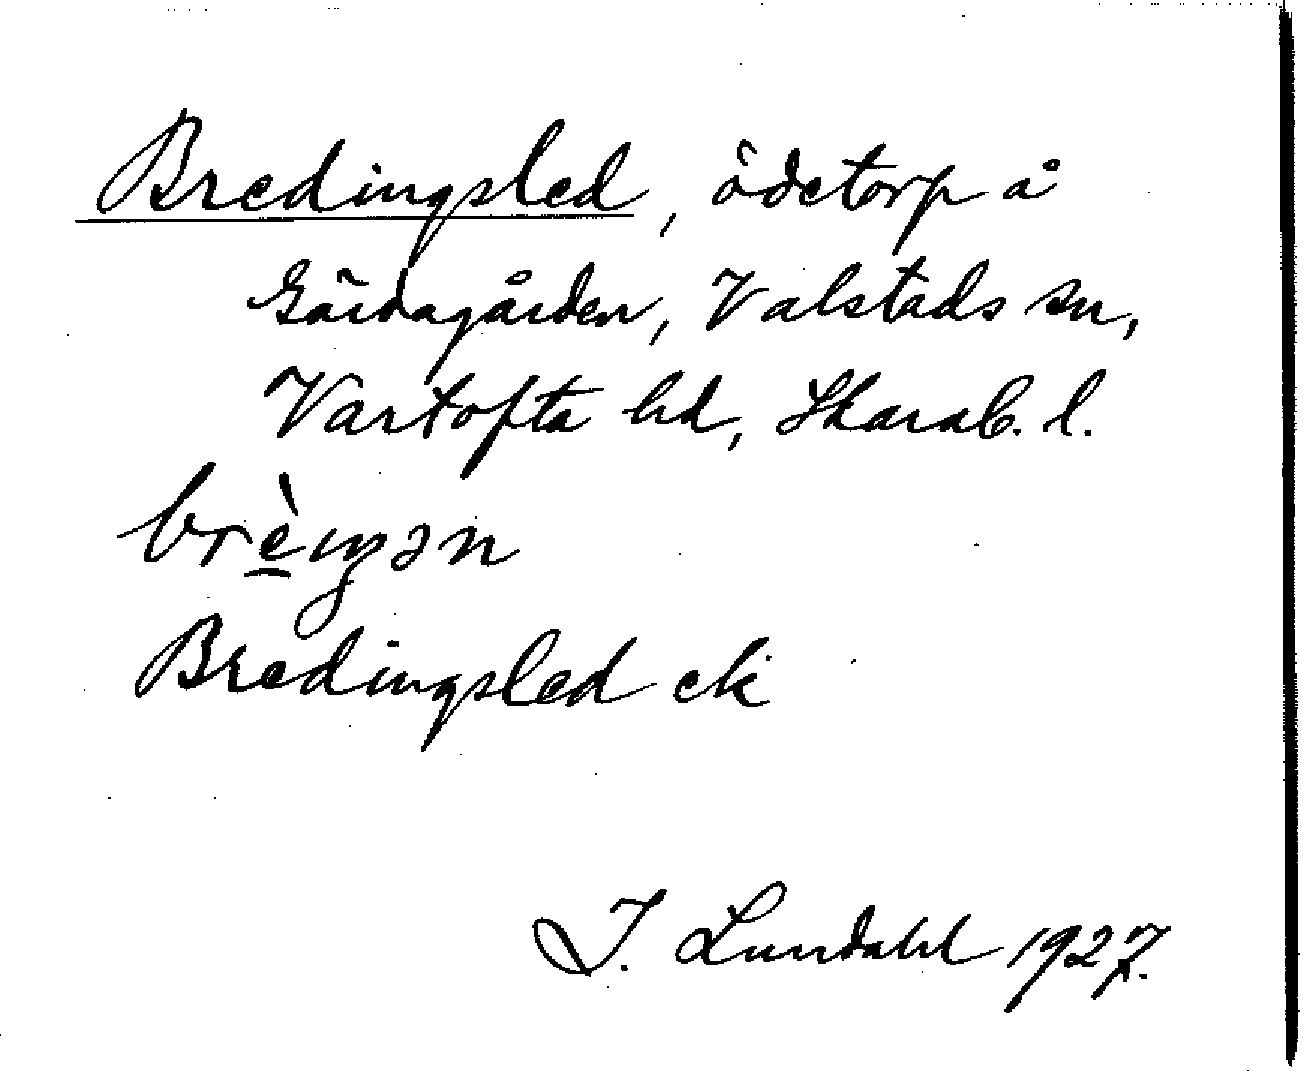 Bredingsled, ödetorp å
Gärdagården, Valstads sn,
Vartofta hd, Skarab. l.
brèŋən
Bredingsled ek
I. Lundahl 1927.